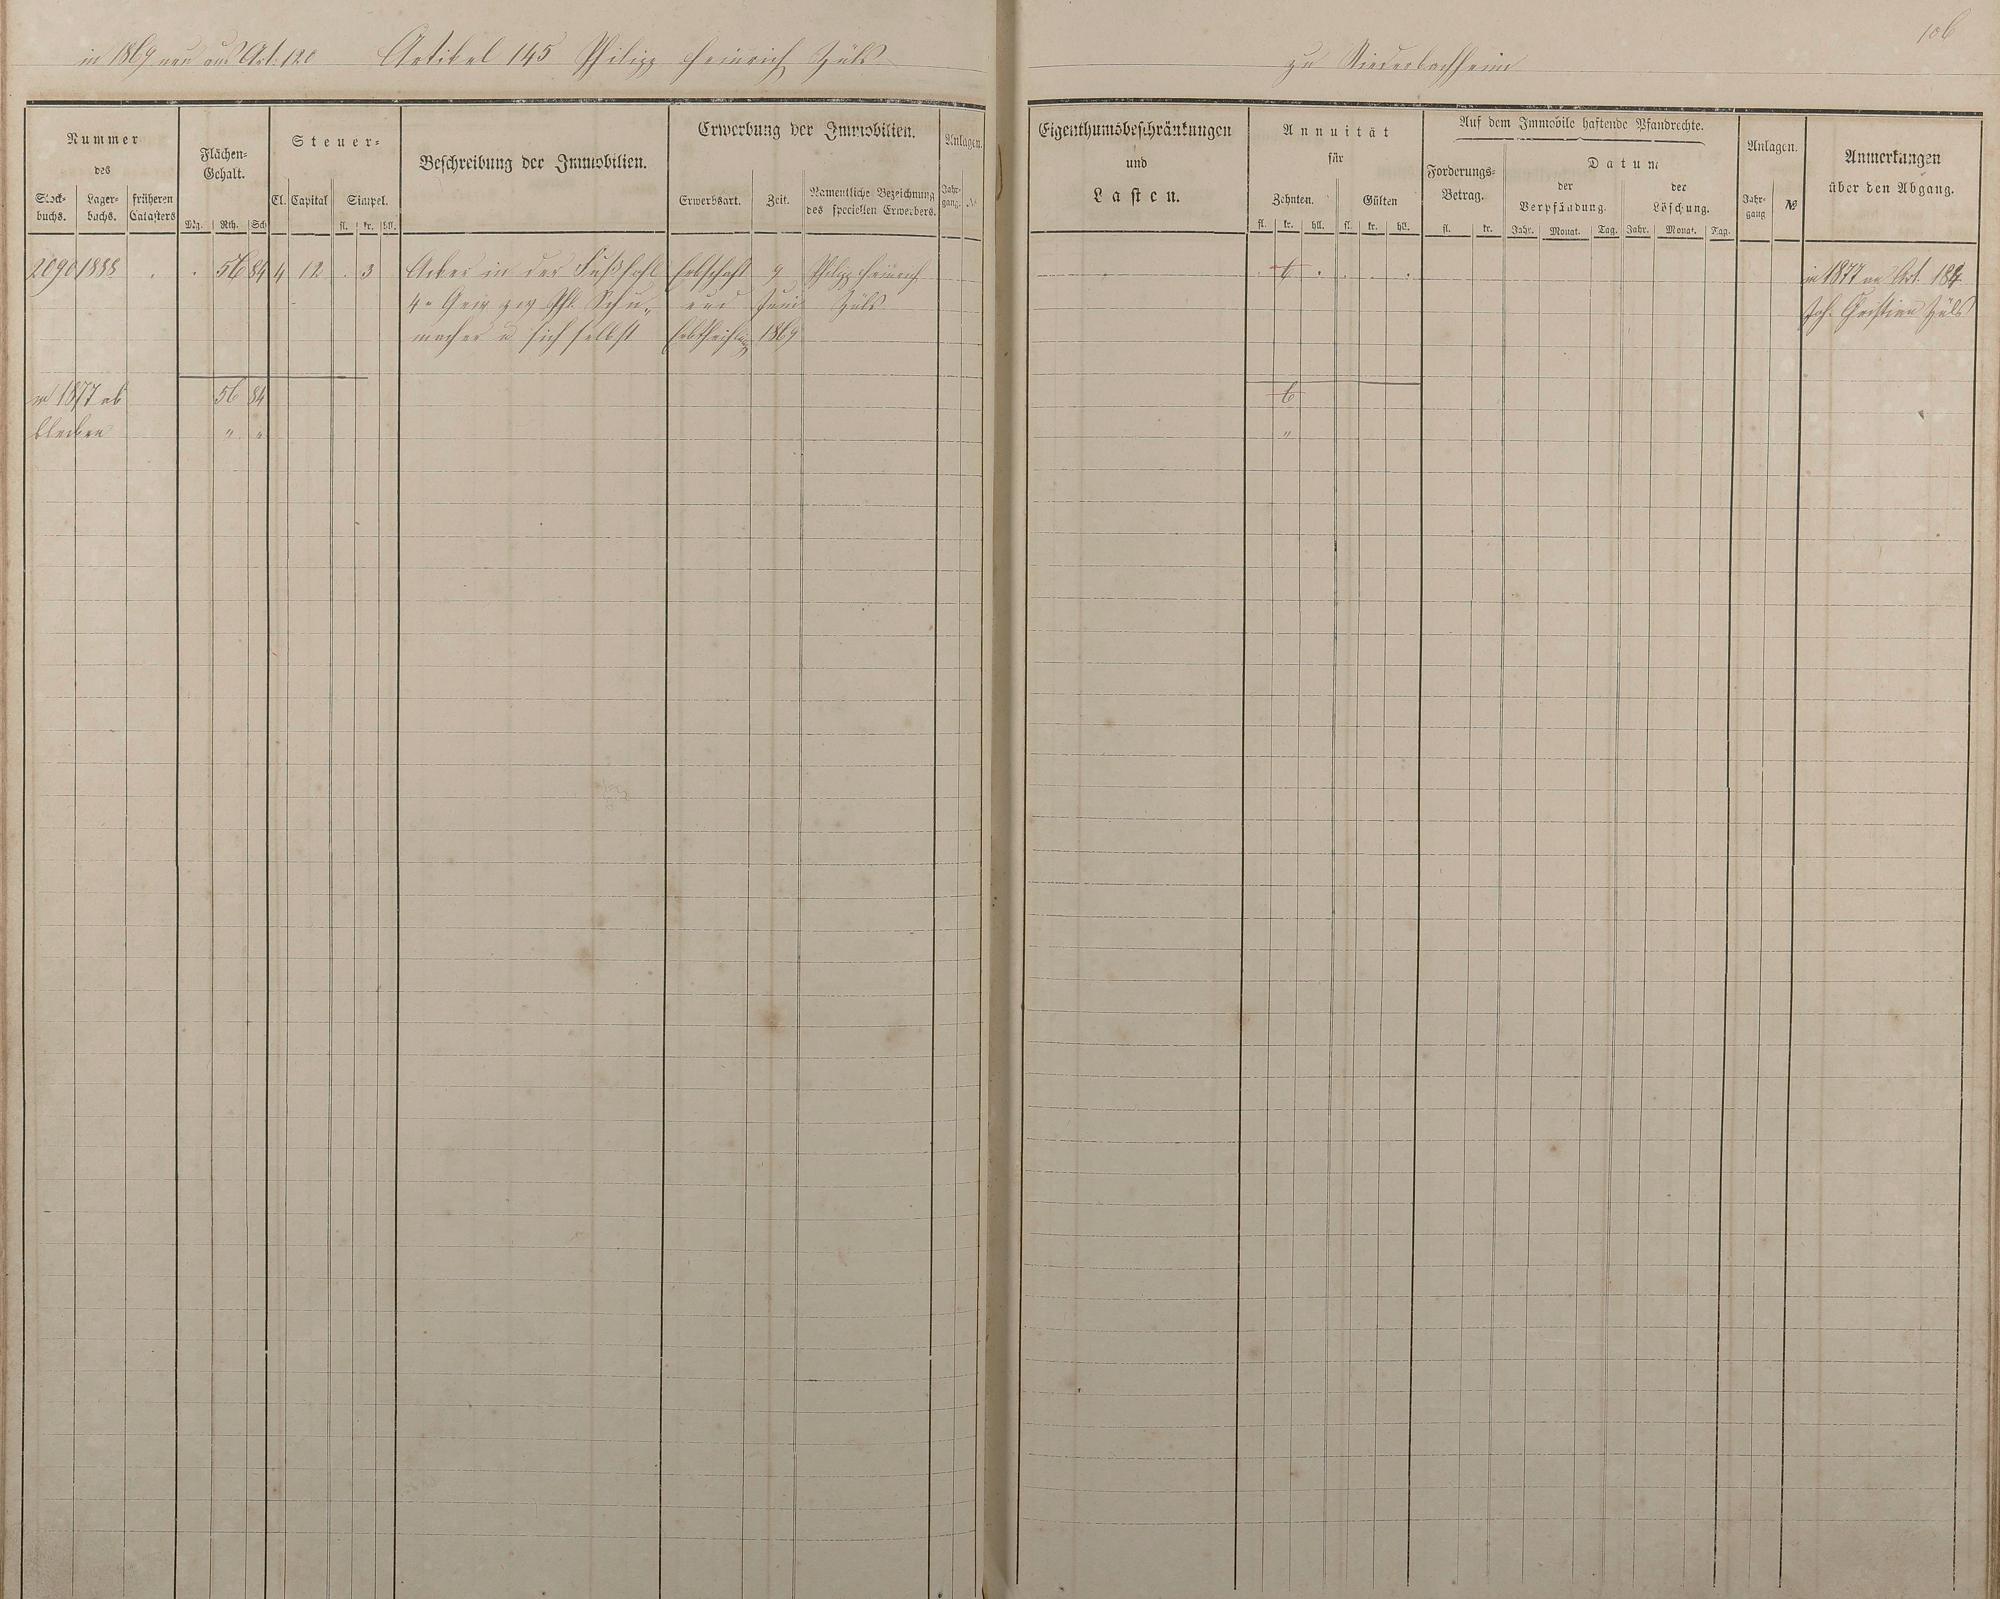 in 1869 neu aus Art. 120 Artikel 145 Philipp Heinrich Züls
zu Niederbachheim
106
Nummer
des
Stock-
buchs.
Lager-
buchs.
früheren
Catasters
Flächen-
Gehalt.
Mg. Rth. Sch
Steuer-
Cl. Capital Simpel.
fl. kr. hll.
Beschreibung der Immobilien.
Erwerbung der Immobilien.
Erwerbsart. Zeit.
Namentliche Bezeichnung
des speciellen Erwerbers.
Anlagen.
Jahr-
gang. №
Eigenthumsbeschränkungen
und
Lasten.
Annuität
für
Zehnten. Gülten
fl. kr. hll. fl. kr. hll.
Auf dem Immobile haftende Pfandrechte.
Forderungs-
Betrag.
fl. kr.
Datum
der
Verpfändung.
Jahr. Monat. Tag.
der
Löschung.
Jahr. Monat. Tag.
Anlagen.
Jahr-
gang №
Anmerkungen
über den Abgang.
2090 1888 . . 56 84 4 12 . 3 Acker in der Erbschaft 9 Philipp Heinrich . 6 . . . . in 1877 an Art. 184
4r Gew zw Phl. Schu- und Juni Züls Joh. Christian Züls
macher u sich selbst Erbtheilung 1869
in 1877 ab 56 84 6
bleiben " " "